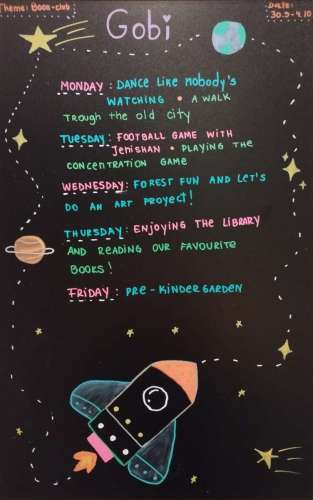 Theme: Book-club
Date:
30.9-4.10
Gobi
MONDAY: DANCE LIKE NOBODY'S
WATCHING • A WALK
TROUGH THE OLD CITY
TUESDAY: FOOTBALL GAME WITH
JEHISHAN • PLAYING THE
CONCENTRATION GAME
WEDNESDAY: FOREST FUN AND LET'S
DO AN ART PROYECT!
THURSDAY: ENJOYING THE LIBRARY
AND READING OUR FAVOURITE
BOOKS!
FRIDAY: PRE-KINDERGARDEN